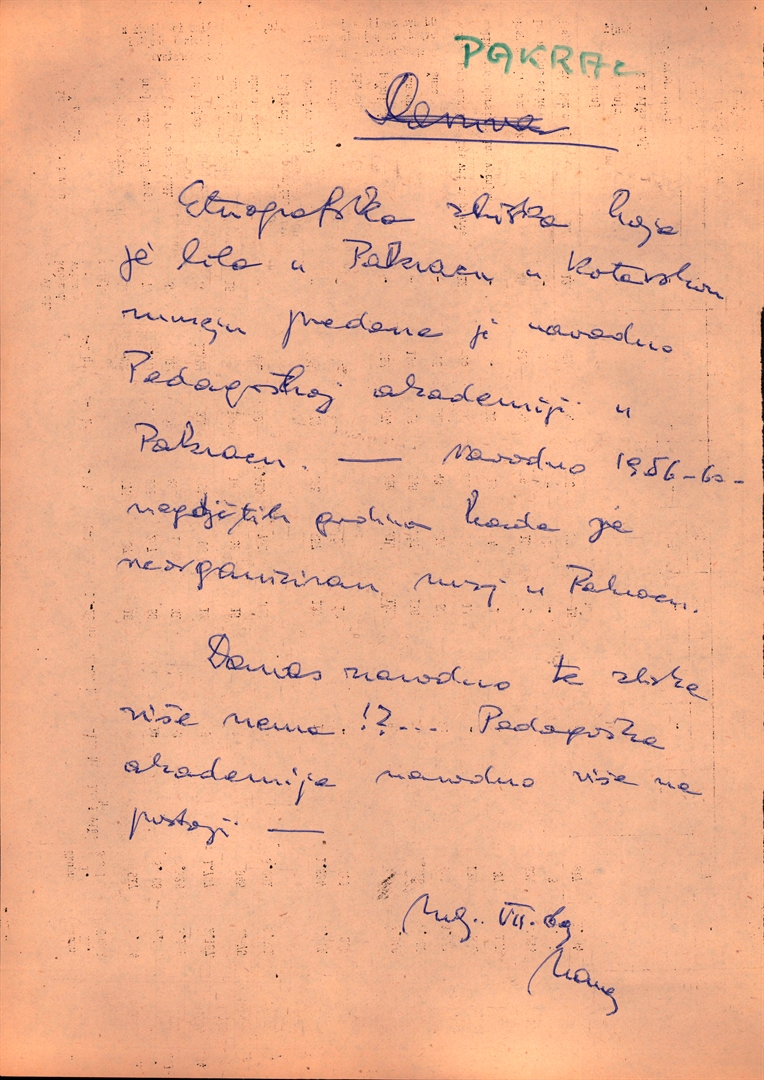 PAKRAC
Etnografska zbirka koja
je bila u Pakracu u Kotarskom
muzeju predana je navodno
Pedagoškoj akademiji u
Pakracu. — navodno 1956-60-
godina kada je
reorganiziran muzej u Pakracu.
Danas navodno te zbirke
više nema !?... Pedagoška
akademija navodno više ne
postoji —
VII. 69